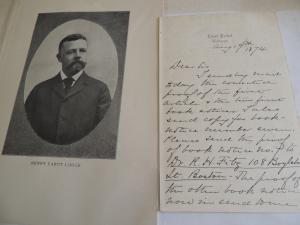 HENRY CABOT LODGE
East Point
Nahant
Aug 1874
Dear Sir
I send by mail
today the corrected
proof of the first
article & the two first
book notices. I also
send copy for book-
notice number seven.
Please send the proof
of book notice no. 7 to
Dr. R. H. Fitz 108 Boylston
St. Boston - The proof of
the other book notice
now in send to me